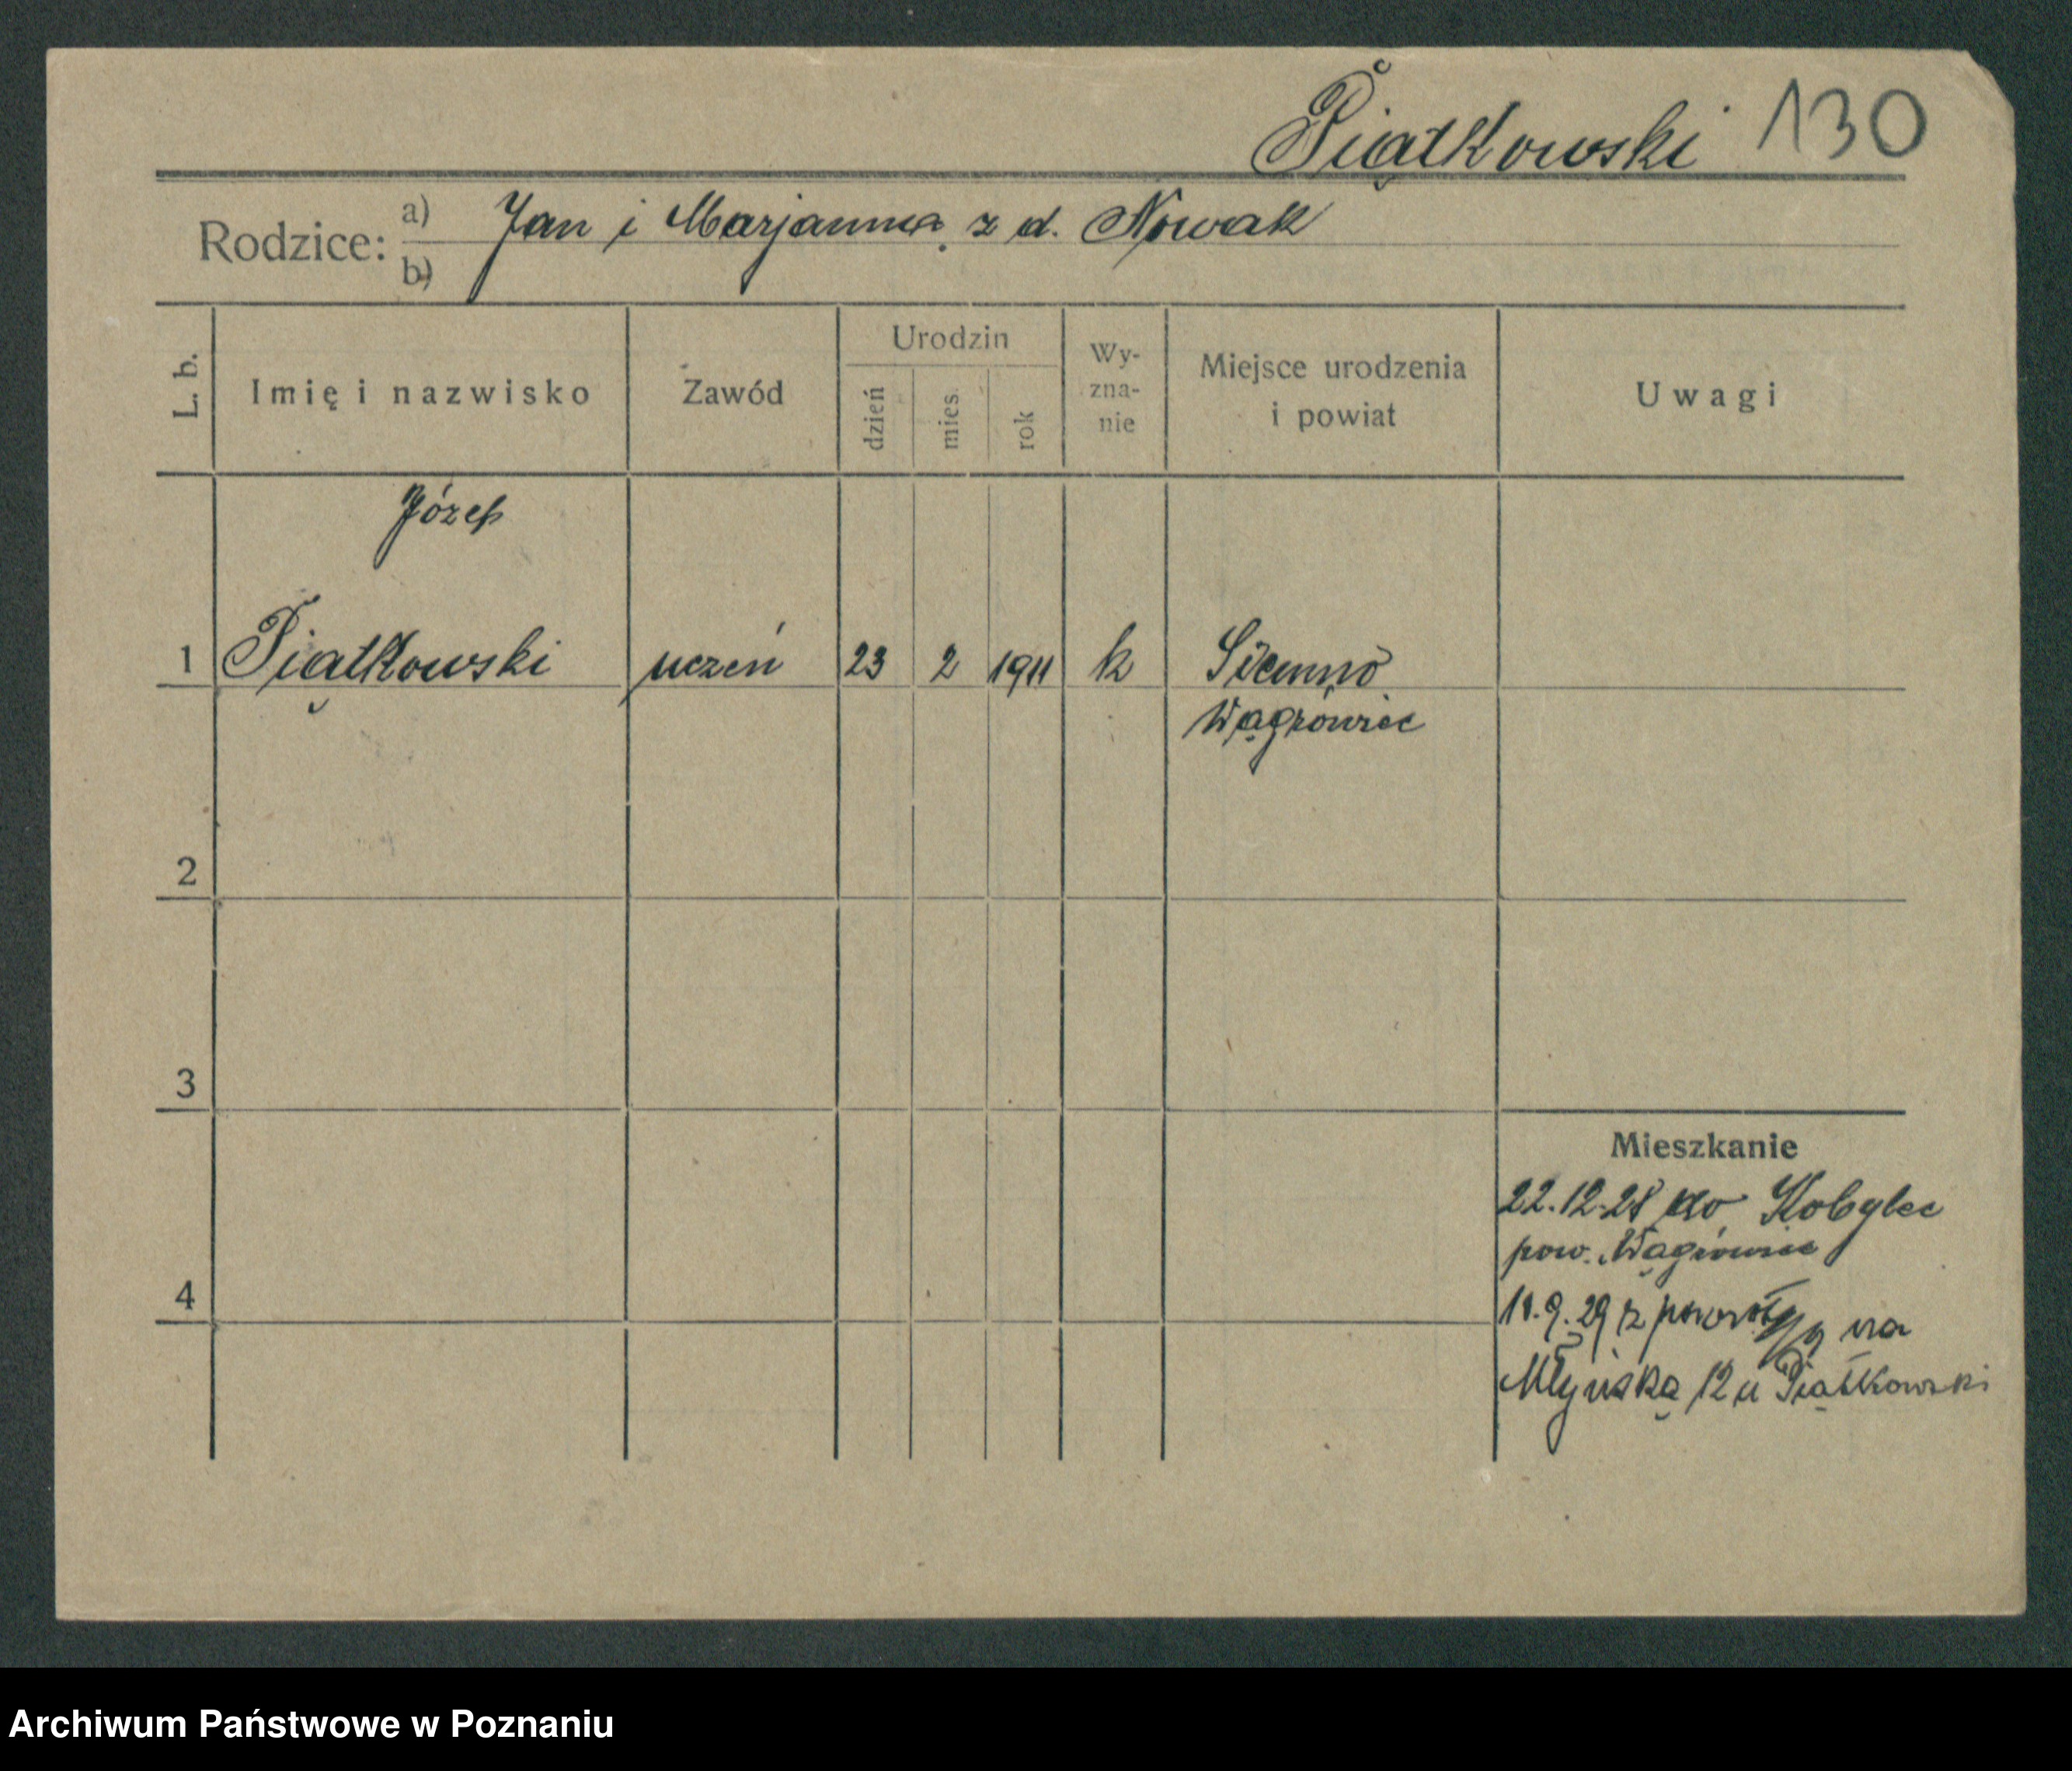 Piątkowski 130
Rodzice: a) Jan i Marjanna z d. Nowak
b)
L. b. Imię i nazwisko Zawód Urodzin dzień mies. rok Wy-zna-nie Miejsce urodzenia i powiat Uwagi
Józef
1 Piątkowski uczeń 23 2 1911 k Sienno
Wągrowiec
2
3
Mieszkanie
22.12.28 do Kobylec
pow. Wągrowiec
4
11.9.29 z na
Młyńska 12 u Piątkowski
Archiwum Państwowe w Poznaniu